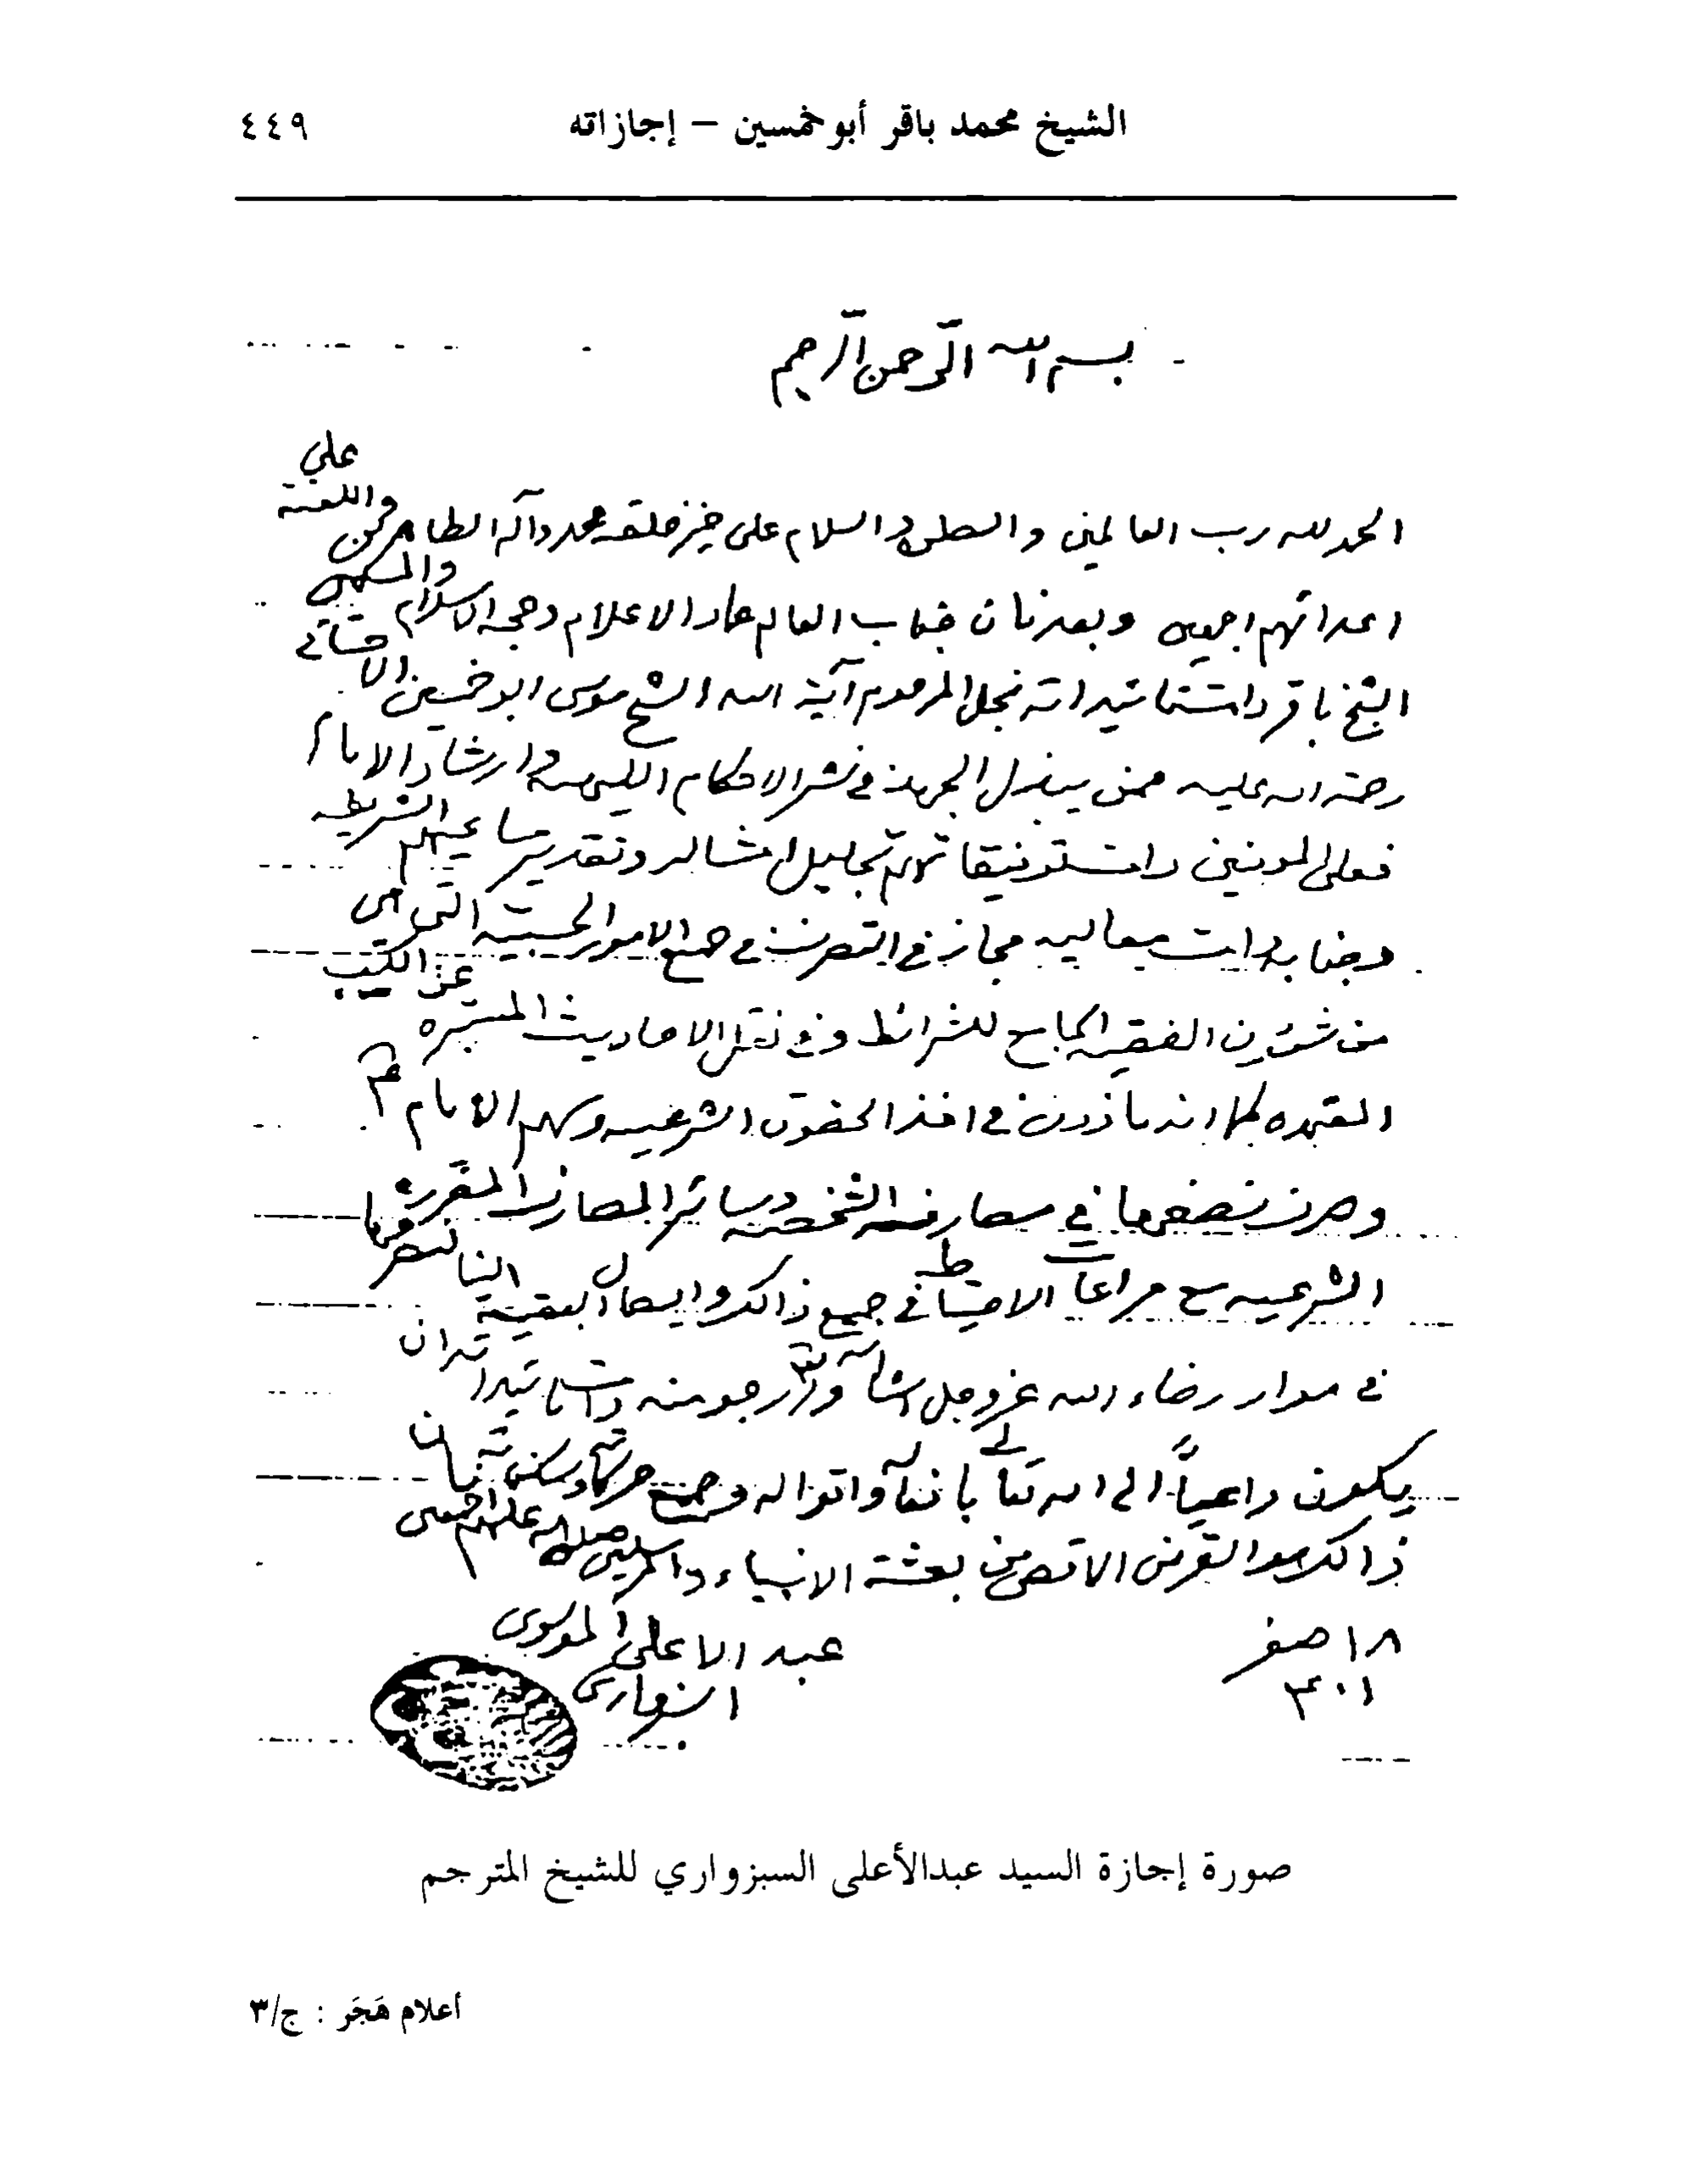 الشيخ محمد باقر أبو خمسين – إجازاته ٤٤٩
بسم الله الرحمن الرحيم
الحمد لله رب العالمين والصلوة والسلام على خير خلقه محمد وآله الطاهرين واللعنة على
اعدائهم اجمعين وبعد فان جناب العالم عماد الاعلام وحجة الاسلام والمسلمين
الشيخ باقر دامت تأييداته نجل المرحوم آية الله الشيخ موسى ابو خمسين الاحسائي
رحمة الله عليه ممن يبذل الجهد في نشر الاحكام الالهيه وارشاد الانام
فعلى المومنين دامت توفيقاتهم تجليل امثاله وتقدير مساعيهم الشريفه
وجنابه دامت معاليه مجاز في التصرف في جميع الامور الحسبيه التي هي
من شؤون الفقيه الجامع للشرائط وفي نقل الاحاديث المعتبره عن الكتب
المعتمده كما انه ماذون في اخذ الحقوق الشرعيه وسهم الامام ع
وصرف نصفها في مصارفه الشخصيه وسائر المصارف المقررة
الشرعيه مع مراعات الاحتياط في جميع ذالك وايصال البقية الينا لنصرفها
في موارد رضاء الله عز وجل انشاء الله وارجو منه دامت تأييداته ان
يكون داعياً الى الله تعالى بافعاله واقواله وجميع حركاته وسكناته فان
ذالك هو الغرض الاقصى من بعثة الانبياء والمرسلين صلوات الله عليهم اجمعين
١٨ صفر عبد الاعلى الموسوي
١٤٠١ السبزواري
صورة إجازة السيد عبدالأعلى السبزواري للشيخ المترجم
أعلام هَجَر : ج/٣